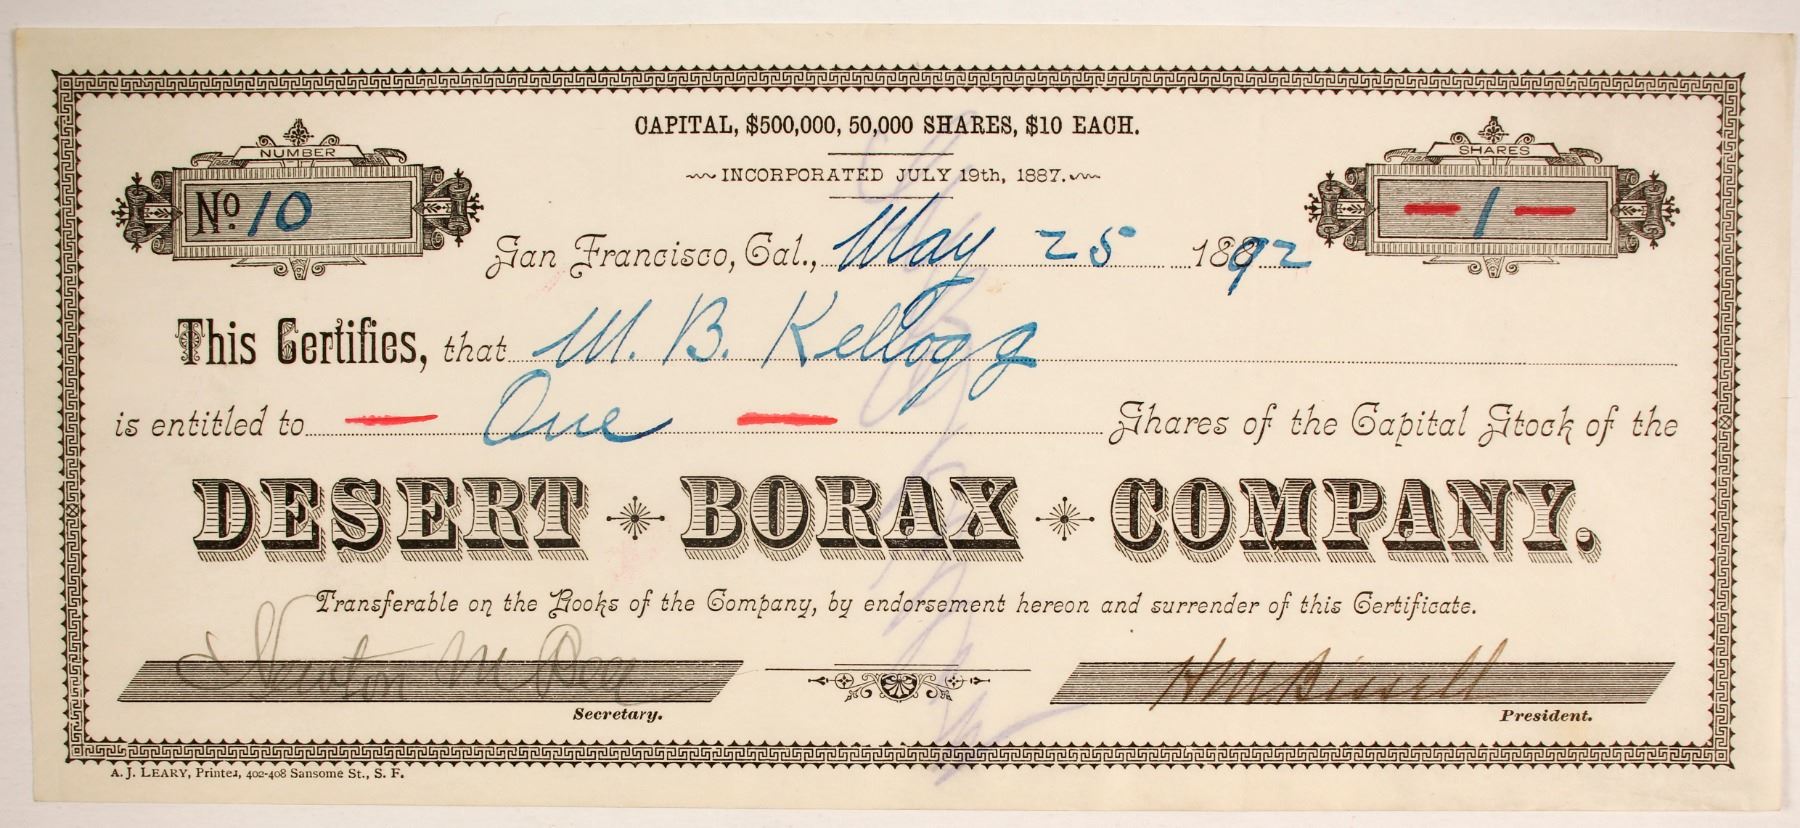 CAPITAL, $500,000, 50,000 SHARES, $10 EACH.
NUMBER
SHARES
INCORPORATED JULY 19th, 1887.
No. 10
— 1 —
San Francisco, Cal., May 25 1892
This Certifies, that M. B. Kellogg
is entitled to — One — Shares of the Capital Stock of the
DESERT BORAX COMPANY.
Transferable on the Books of the Company, by endorsement hereon and surrender of this Certificate.
Newton H M Bissell
Secretary. President.
A. J. LEARY, Printer, 402-408 Sansome St., S. F.